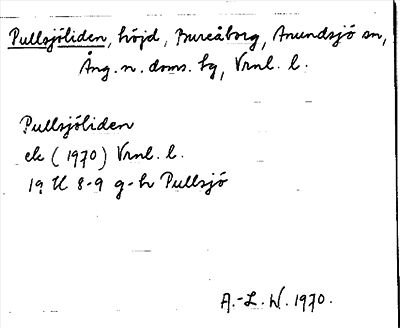 Pullsjöliden, höjd, Bureåborg, Anundsjö sn,
Ång. n. doms. hg, Vrnl. l.
Pullsjöliden
ek (1970) Vrnl. l.
19 H 8-9 g-h Pullsjö
A.-L. W. 1970.